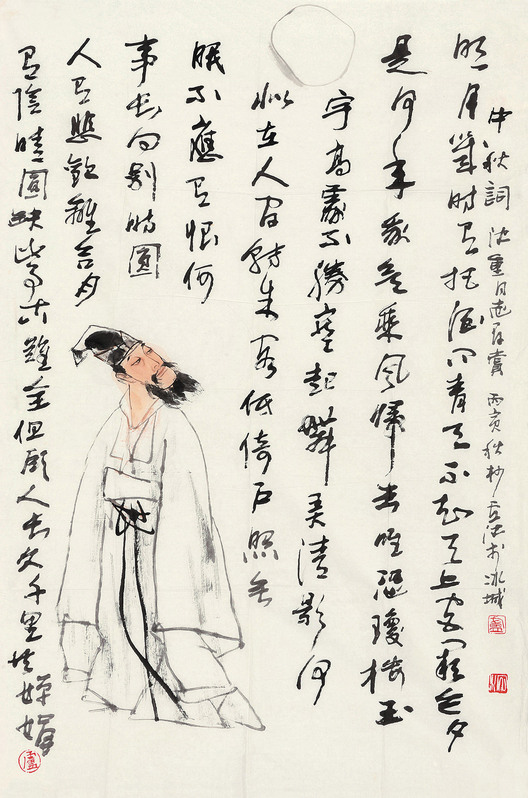 中秋詞 沈重同志存賞 丙寅秋杪盧沉於冰城
明月幾時有把酒問青天不知天上宮闕今夕
是何年我欲乘風歸去唯恐瓊樓玉
宇高處不勝寒起舞弄清影何
似在人間轉朱閣低倚户照無
眠不應有恨何
事長向別時圓
人有悲歡離合月
有陰晴圓缺此事古難全但願人長久千里共嬋娟
盧
沉
盧